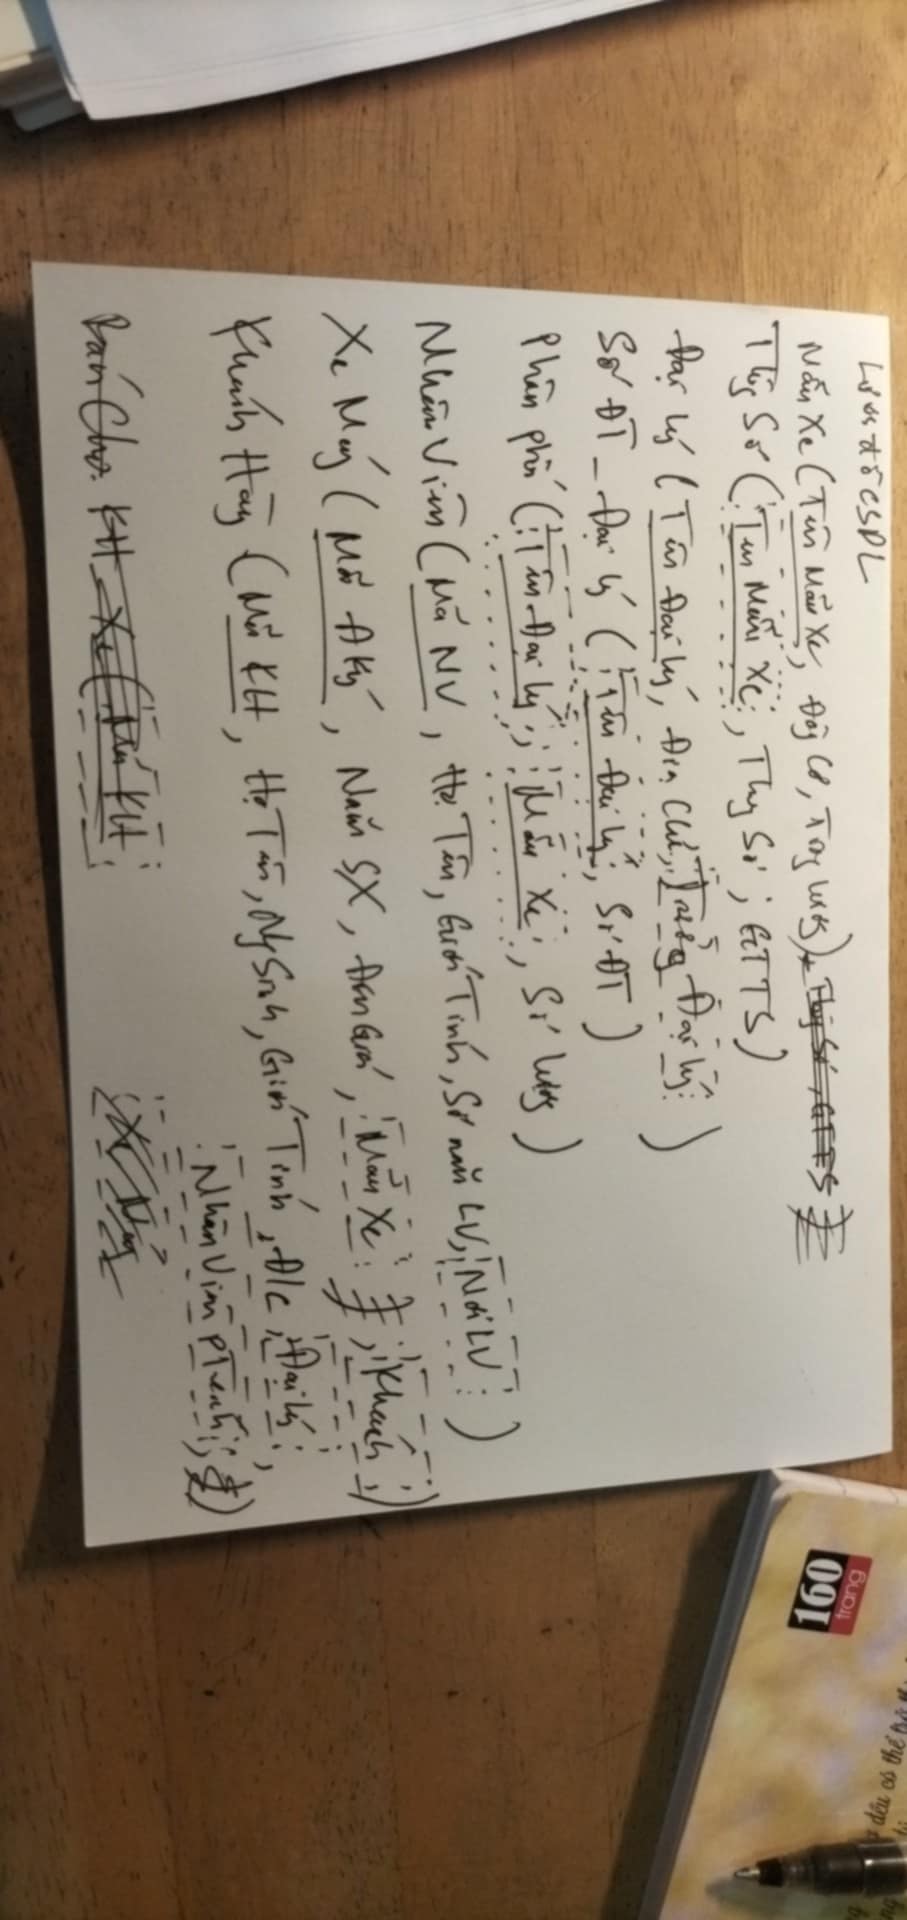 Lược đồ CSDL
Mẫu Xe (Tên Mẫu Xe, Động Cơ, Trọng lượng)
Thông Số (Tên Mẫu Xe, Thông Số, GTTS)
Đại lý (Tên Đại lý, Địa Chỉ, Trưởng Đại lý)
Số ĐT_Đại lý (Tên Đại lý, Số ĐT)
Phân phối (Tên Đại lý, Mẫu Xe, Số lượng)
Nhân Viên (Mã NV, Họ Tên, Giới Tính, Số năm LV, Nơi LV)
Xe Máy (Mã ĐKý, Năm SX, Đơn Giá, Mẫu Xe, Khách)
Khách Hàng (Mã KH, Họ Tên, Ng Sinh, Giới Tính, Đ/c, Đại lý,
Nhân Viên PTrách)
Bán Cho: KH_Xe (Mã KH
Xe Máy
160
trang
đều có thể